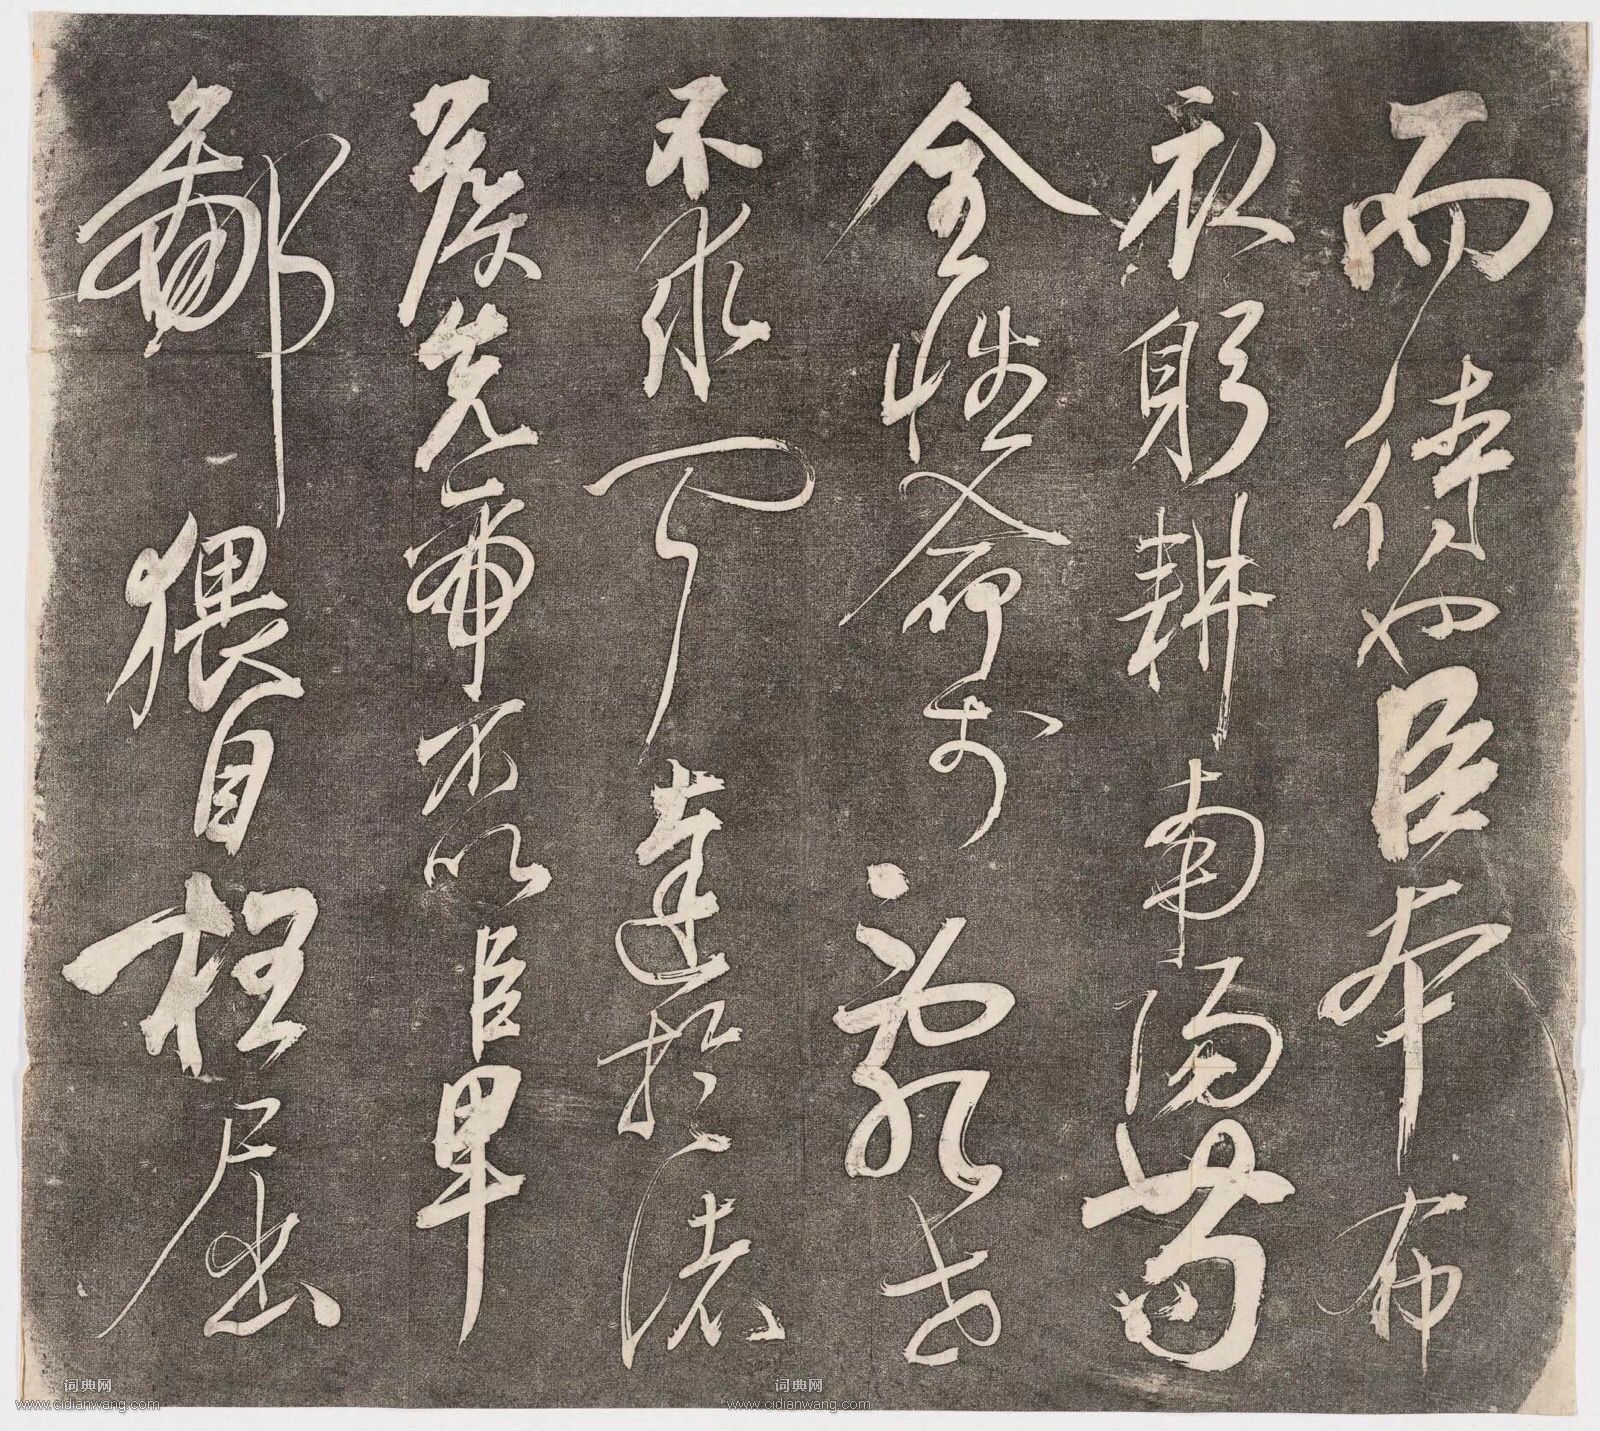 而待也臣本布
衣躬耕南陽苟
全性命於亂世
不求聞達於諸
侯先帝不以臣卑
鄙猥自枉屈
词典网
www.cidianwang.com
词典网
www.cidianwang.com